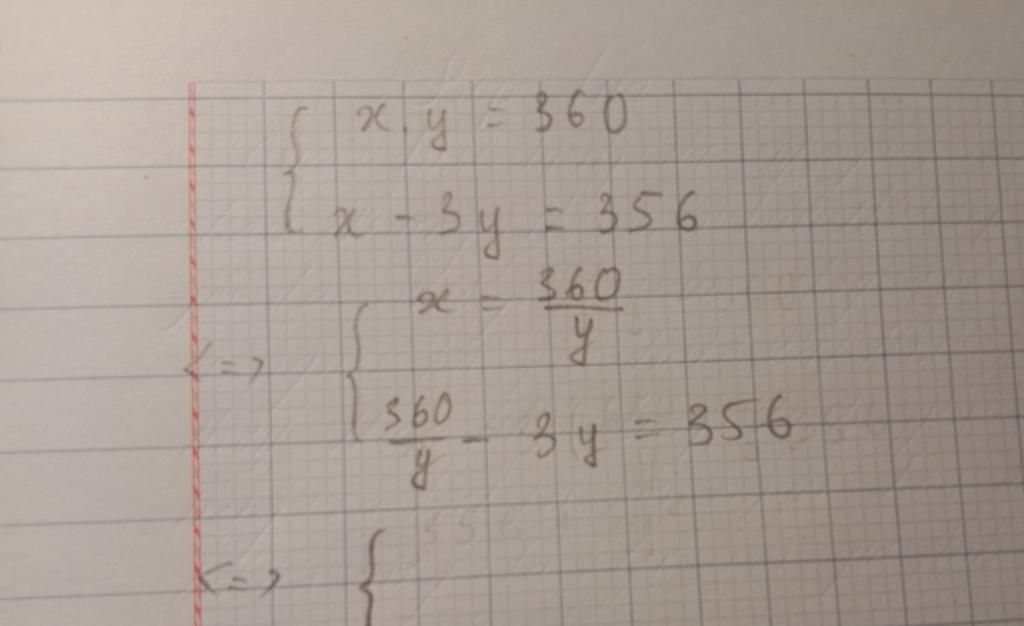 { x . y = 360
x - 3y = 356
<=> { x = 360/y
360/y - 3y = 356
<=> {